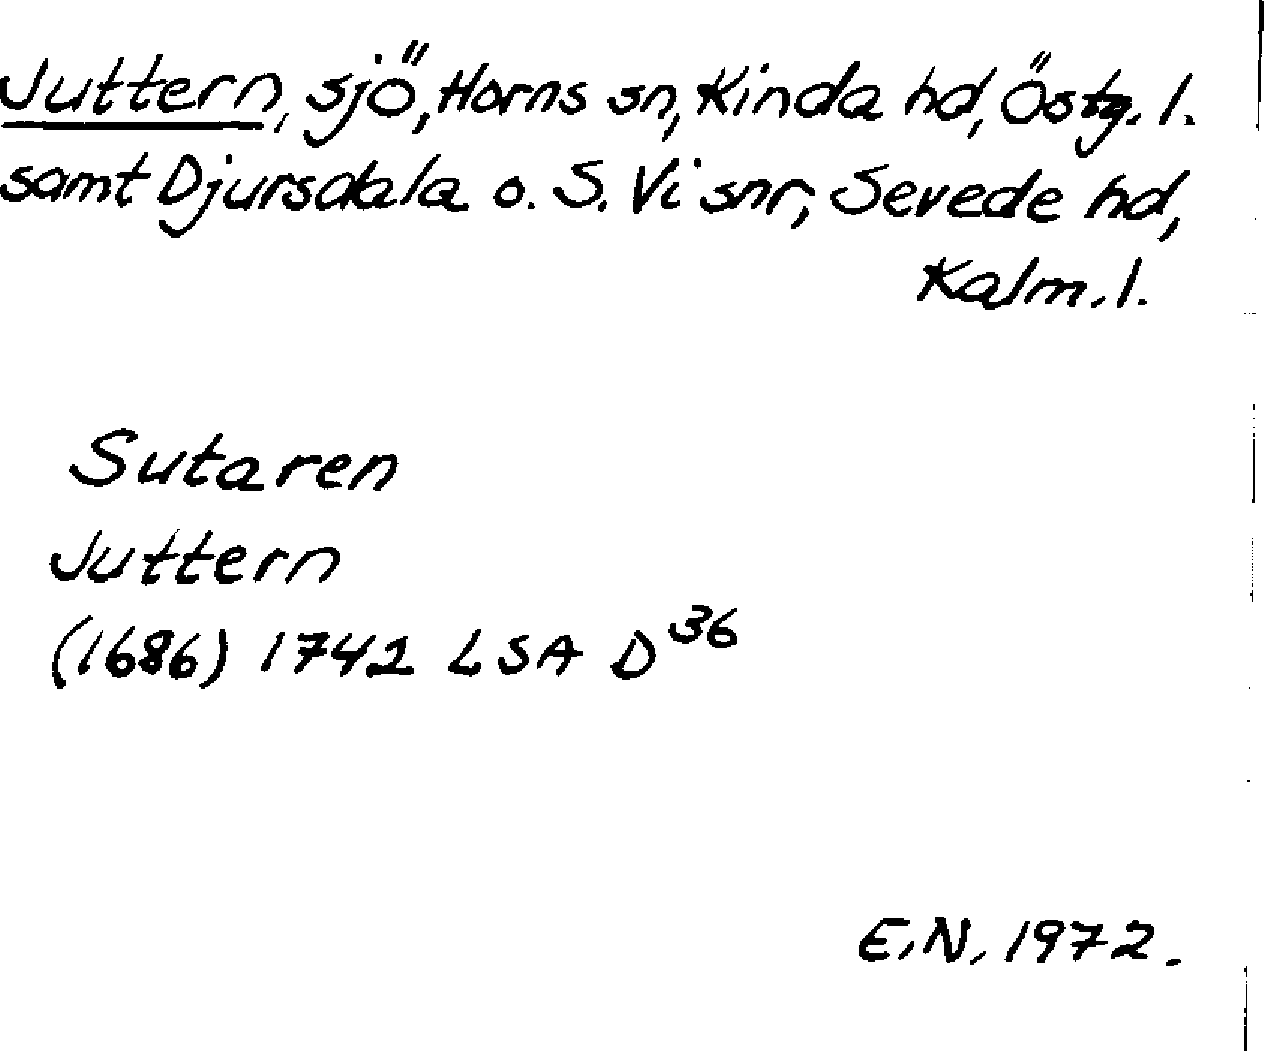 Juttern, sjö, Horns sn, Kinda hd, Östg. l.
samt Djursdala o. S. Vi snr, Sevede hd,
Kalm. l.
Sutaren
Juttern
(1686) 1742 LSA D36
E.N. 1972.